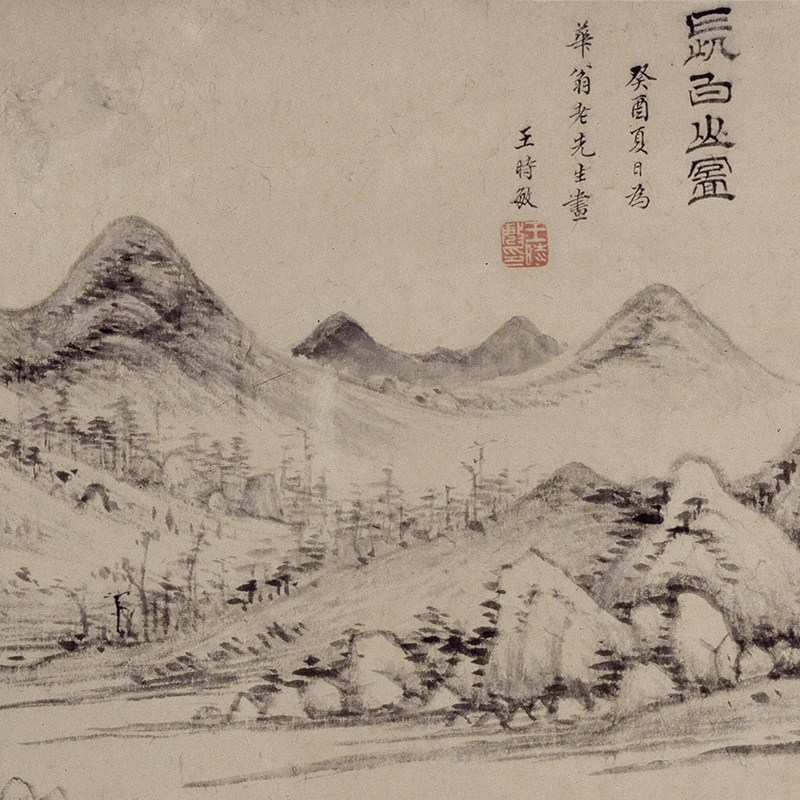 長白山
癸酉夏日為
華翁老先生畫
王時敏
王時敏印